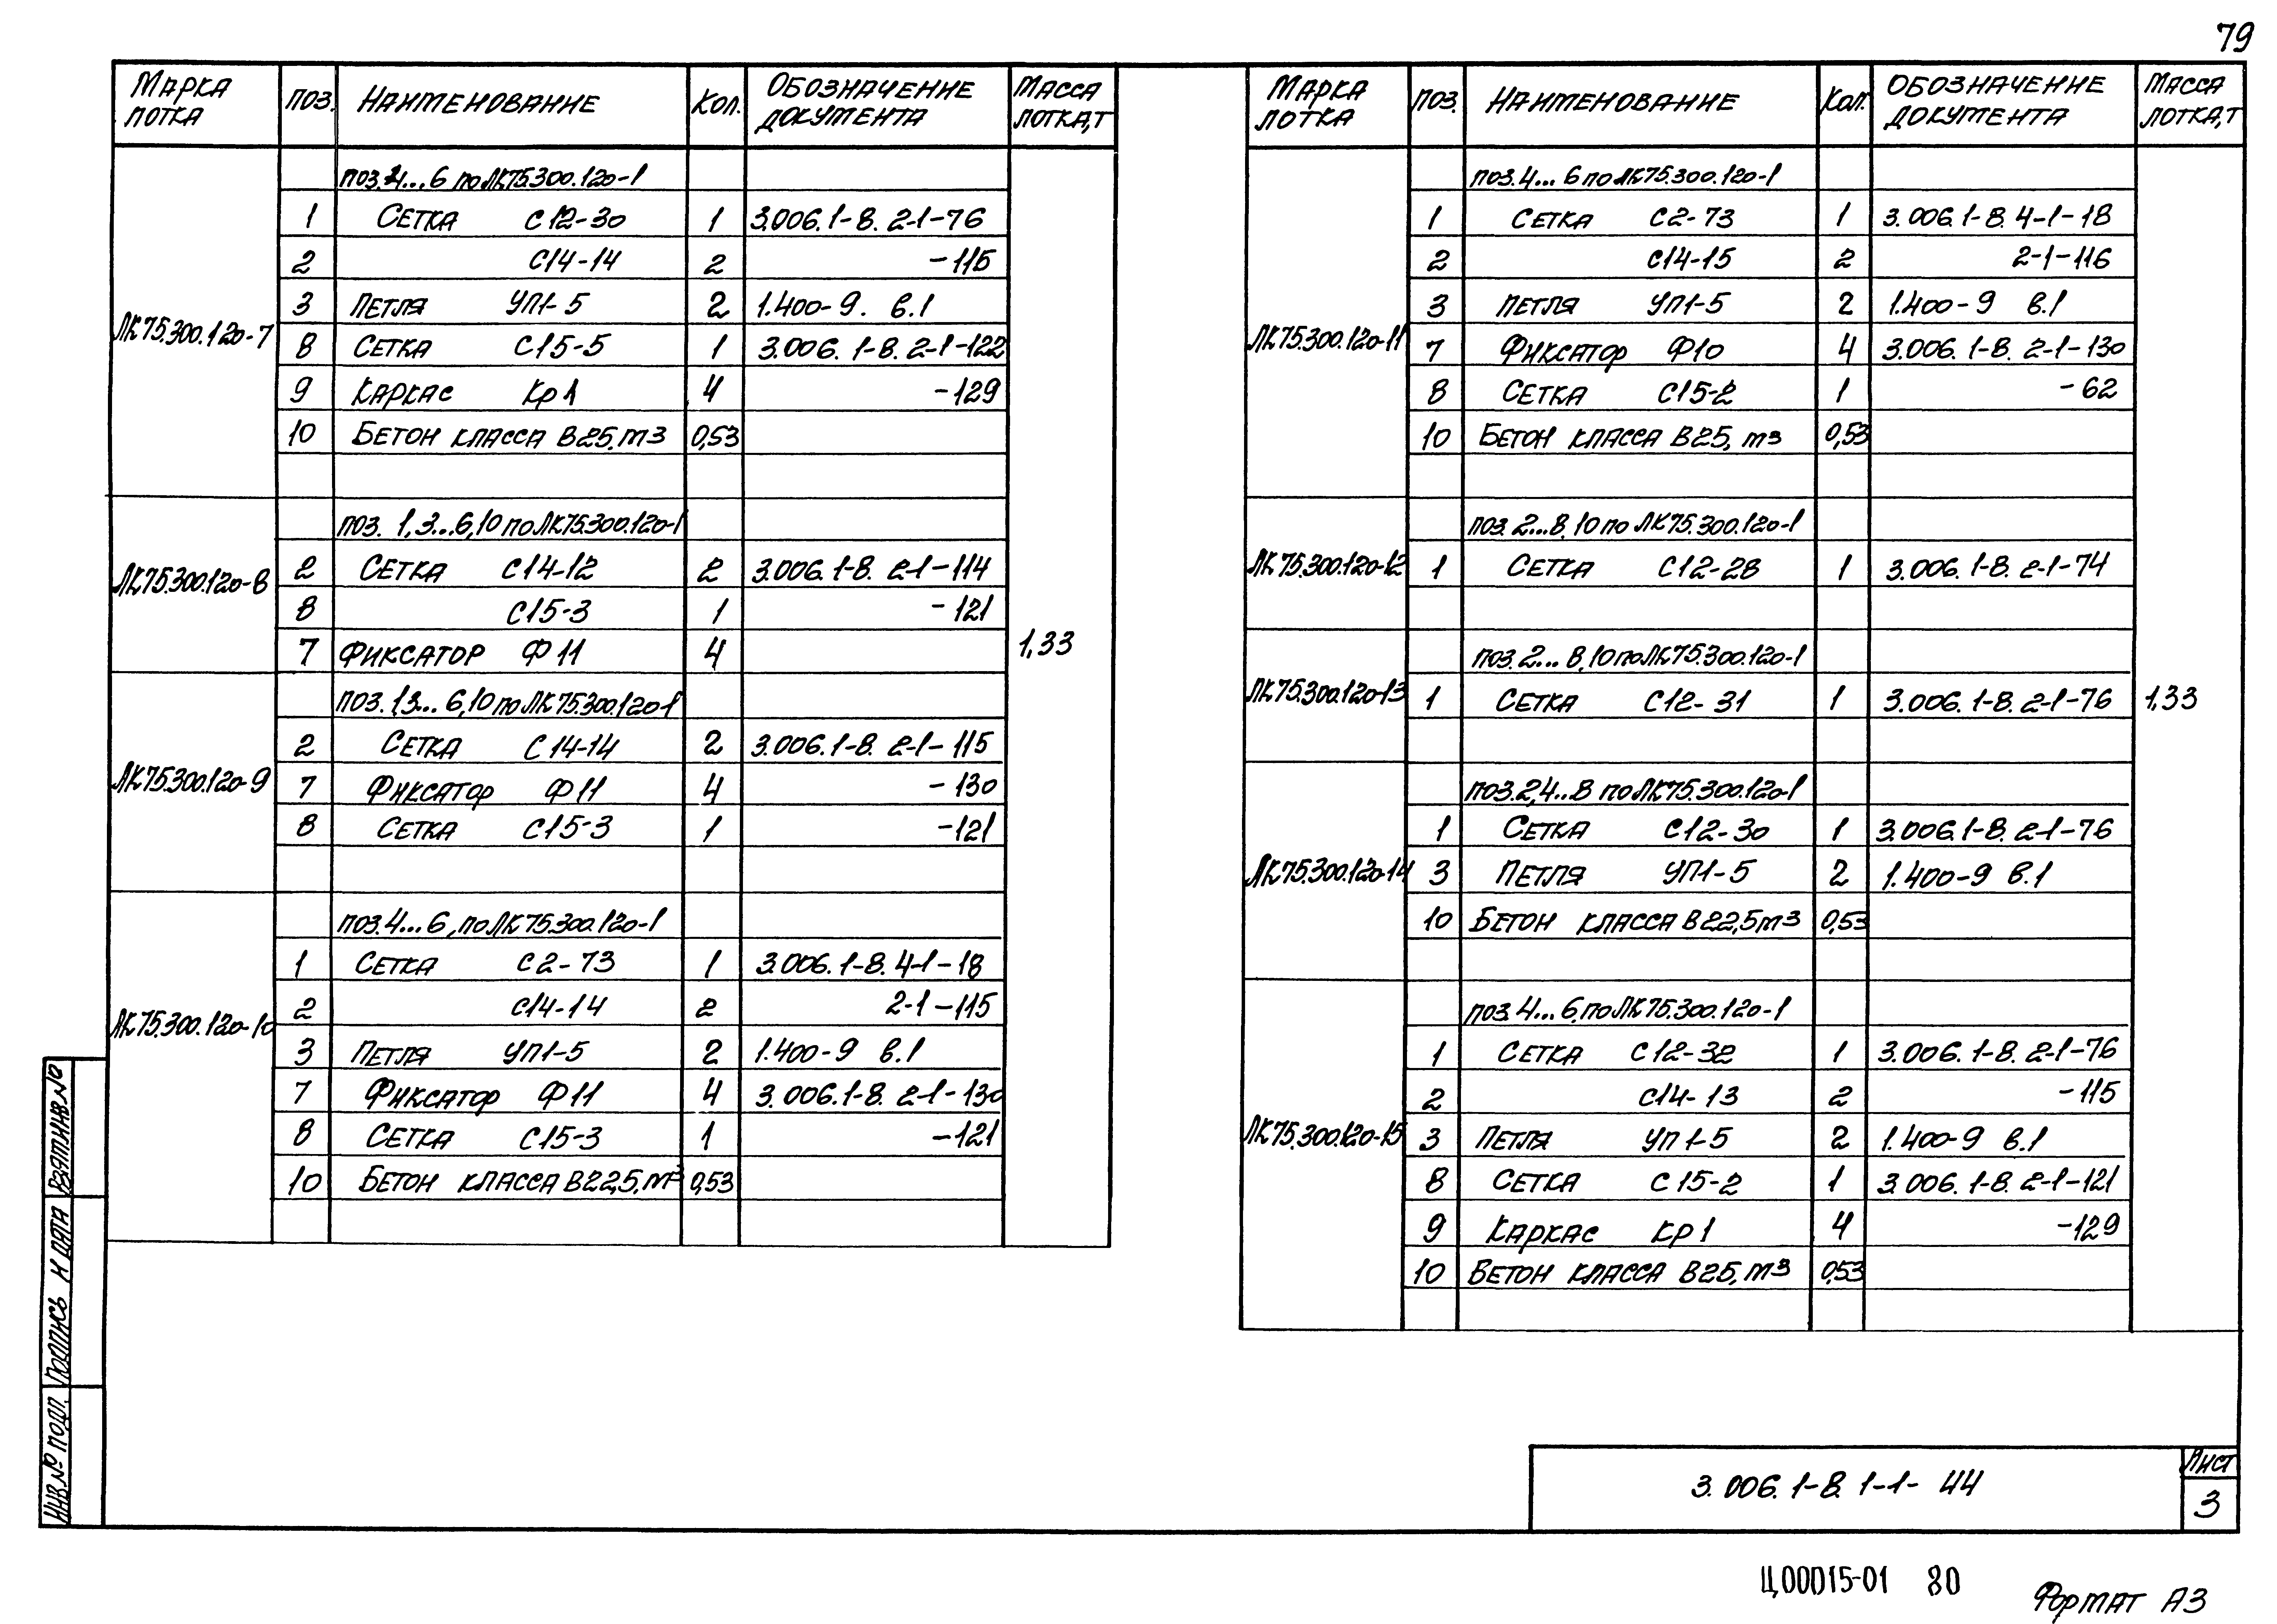 79
Марка лотка | Поз. | Наименование | Кол. | Обозначение документа | Масса лотка, т
ЛК75.300.120-7
поз.4...6 по ЛК75.300.120-1
1 Сетка С12-30 1 3.006.1-8. 2-1-76
2 С14-14 2 -115
3 Петля УП1-5 2 1.400-9. в.1
8 Сетка С15-5 1 3.006.1-8. 2-1-122
9 Каркас Кр1 4 -129
10 Бетон класса В25, м3 0,53
ЛК75.300.120-8
поз. 1,3...6,10 по ЛК75.300.120-1
2 Сетка С14-12 2 3.006.1-8. 2-1-114
8 С15-3 1 -121
7 Фиксатор Ф11 4
1,33
ЛК75.300.120-9
поз. 1,3...6,10 по ЛК75.300.120-1
2 Сетка С14-14 2 3.006.1-8. 2-1-115
7 Фиксатор Ф11 4 -130
8 Сетка С15-3 1 -121
ЛК75.300.120-10
поз.4...6, по ЛК75.300.120-1
1 Сетка С2-73 1 3.006.1-8. 4-1-18
2 С14-14 2 2-1-115
3 Петля УП1-5 2 1.400-9 в.1
7 Фиксатор Ф11 4 3.006.1-8. 2-1-130
8 Сетка С15-3 1 -121
10 Бетон класса В22,5, м3 0,53
Марка лотка | Поз. | Наименование | Кол. | Обозначение документа | Масса лотка, т
ЛК75.300.120-11
поз.4...6 по ЛК75.300.120-1
1 Сетка С2-73 1 3.006.1-8. 4-1-18
2 С14-15 2 2-1-116
3 Петля УП1-5 2 1.400-9 в.1
7 Фиксатор Ф10 4 3.006.1-8. 2-1-130
8 Сетка С15-2 1 -62
10 Бетон класса В25, м3 0,53
ЛК75.300.120-12
поз.2...8,10 по ЛК75.300.120-1
1 Сетка С12-28 1 3.006.1-8. 2-1-74
ЛК75.300.120-13
поз.2...8,10 по ЛК75.300.120-1
1 Сетка С12-31 1 3.006.1-8. 2-1-76
1,33
ЛК75.300.120-14
поз.2,4...8 по ЛК75.300.120-1
1 Сетка С12-30 1 3.006.1-8. 2-1-76
3 Петля УП1-5 2 1.400-9 в.1
10 Бетон класса В22,5 м3 0,53
ЛК75.300.120-15
поз.4...6, по ЛК75.300.120-1
1 Сетка С12-32 1 3.006.1-8. 2-1-76
2 С14-13 2 -115
3 Петля УП1-5 2 1.400-9 в.1
8 Сетка С15-2 1 3.006.1-8. 2-1-121
9 Каркас Кр1 4 -129
10 Бетон класса В25, м3 0,53
Взят инв.№
Подпись и дата
Инв.№ подл.
3.006.1-8. 1-1-44
Лист
3
Ц00015-01 80
Формат А3